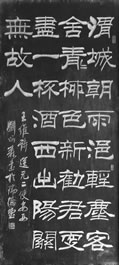 渭城朝雨浥輕塵客
舍青青柳色新勸君更
盡一杯酒西出陽關
無故人
王維詩送元二使安西